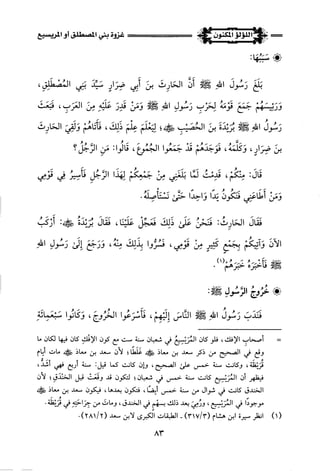 اللؤلؤ المكنون
غزوة بني المصطلق أو المريسيع
سَبَبُهَا:
بَلَغَ رَسُولَ اللهِ ﷺ أَنَّ الحَارِثَ بنَ أَبِي ضِرَارٍ سَيِّدَ بَنِي المُصْطَلِقِ،
وَرَئِيسَهُمْ جَمَعَ قَوْمَهُ لِحَرْبِ رَسُولِ اللهِ ﷺ وَمَنْ قَدِرَ عَلَيْهِ مِنَ العَرَبِ، فَبَعَثَ
رَسُولُ اللهِ ﷺ بُرَيْدَةَ بنَ الحُصَيْبِ ﷺ؛ لِيَعْلَمَ عِلْمَ ذَلِكَ، فَأَتَاهُمْ وَلَقِيَ الحَارِثَ
بنَ ضِرَارٍ، وَكَلَّمَهُ، فَوَجَدَهُمْ قَدْ جَمَعُوا الجُمُوعَ، قَالُوا: مَنِ الرَّجُلُ؟
قَالَ: مِنْكُمْ، قَدِمْتُ لَمَّا بَلَغَنِي مِنْ جَمْعِكُمْ لِهَذَا الرَّجُلِ فَأَسِيرُ فِي قَوْمِي
وَمَنْ أَطَاعَنِي فَنَكُونُ يَدًا وَاحِدًا حَتَّى نَسْتَأْصِلَهُ.
فَقَالَ الحَارِثُ: فَنَحْنُ عَلَى ذَلِكَ فَعَجِّلْ عَلَيْنَا، فَقَالَ بُرَيْدَةُ: أَرْكَبُ
الآنَ وَآتِيكُمْ بِجَمْعٍ كَثِيرٍ مِنْ قَوْمِي، فَسُرُّوا بِذَلِكَ مِنْهُ، وَرَجَعَ إِلَى رَسُولِ اللهِ
ﷺ فَأَخْبَرَهُ خَبَرَهُمْ(١).
خُرُوجُ الرَّسُولِ ﷺ:
فَنَدَبَ رَسُولُ اللهِ ﷺ النَّاسَ إِلَيْهِمْ، فَأَسْرَعُوا الخُرُوجَ، وَكَانُوا سَبْعَمِائَةِ
= أصحاب الإفك، فلو كان المُرَيْسِيع في شعبان سنة ست مع كون الإفك كان فيها لكان ما
وقع في الصحيح من ذكر سعد بن معاذ غلطًا؛ لأن سعد بن معاذ مات أيام
قُريظة، وكانت سنة خمس على الصحيح، وإن كانت كما قيل: سنة أربع فهي أشد،
فيظهر أن المُرَيْسِيع كانت سنة خمس في شعبان؛ لتكون قد وقعت قبل الخندق؛ لأن
الخندق كانت في شوال من سنة خمس أيضًا، فتكون بعدها، فيكون سعد بن معاذ
موجودًا في المُرَيْسِيع، ورُمِيَ بعد ذلك بسهم في الخندق، ومات من جراحته في قُريظة.
(١) انظر سيرة ابن هشام (٣١٧/٣) - الطبقات الكبرى لابن سعد (٢٨١/٢).
٨٣